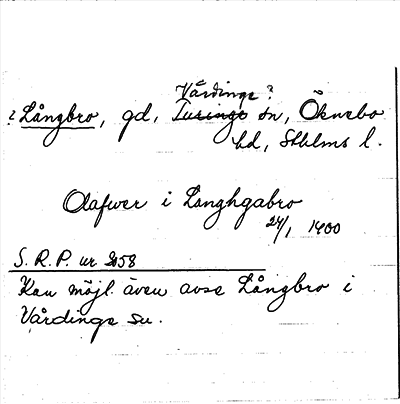 Vårdinge?
? Långbro, gd, Turinge sn, Öknebo
hd, Sthlms l.
Olafwer i Langhgabro
24/1 1400
S. R. P. nr 3058
Kan möjl. även avse Långbro i
Vårdinge sn.